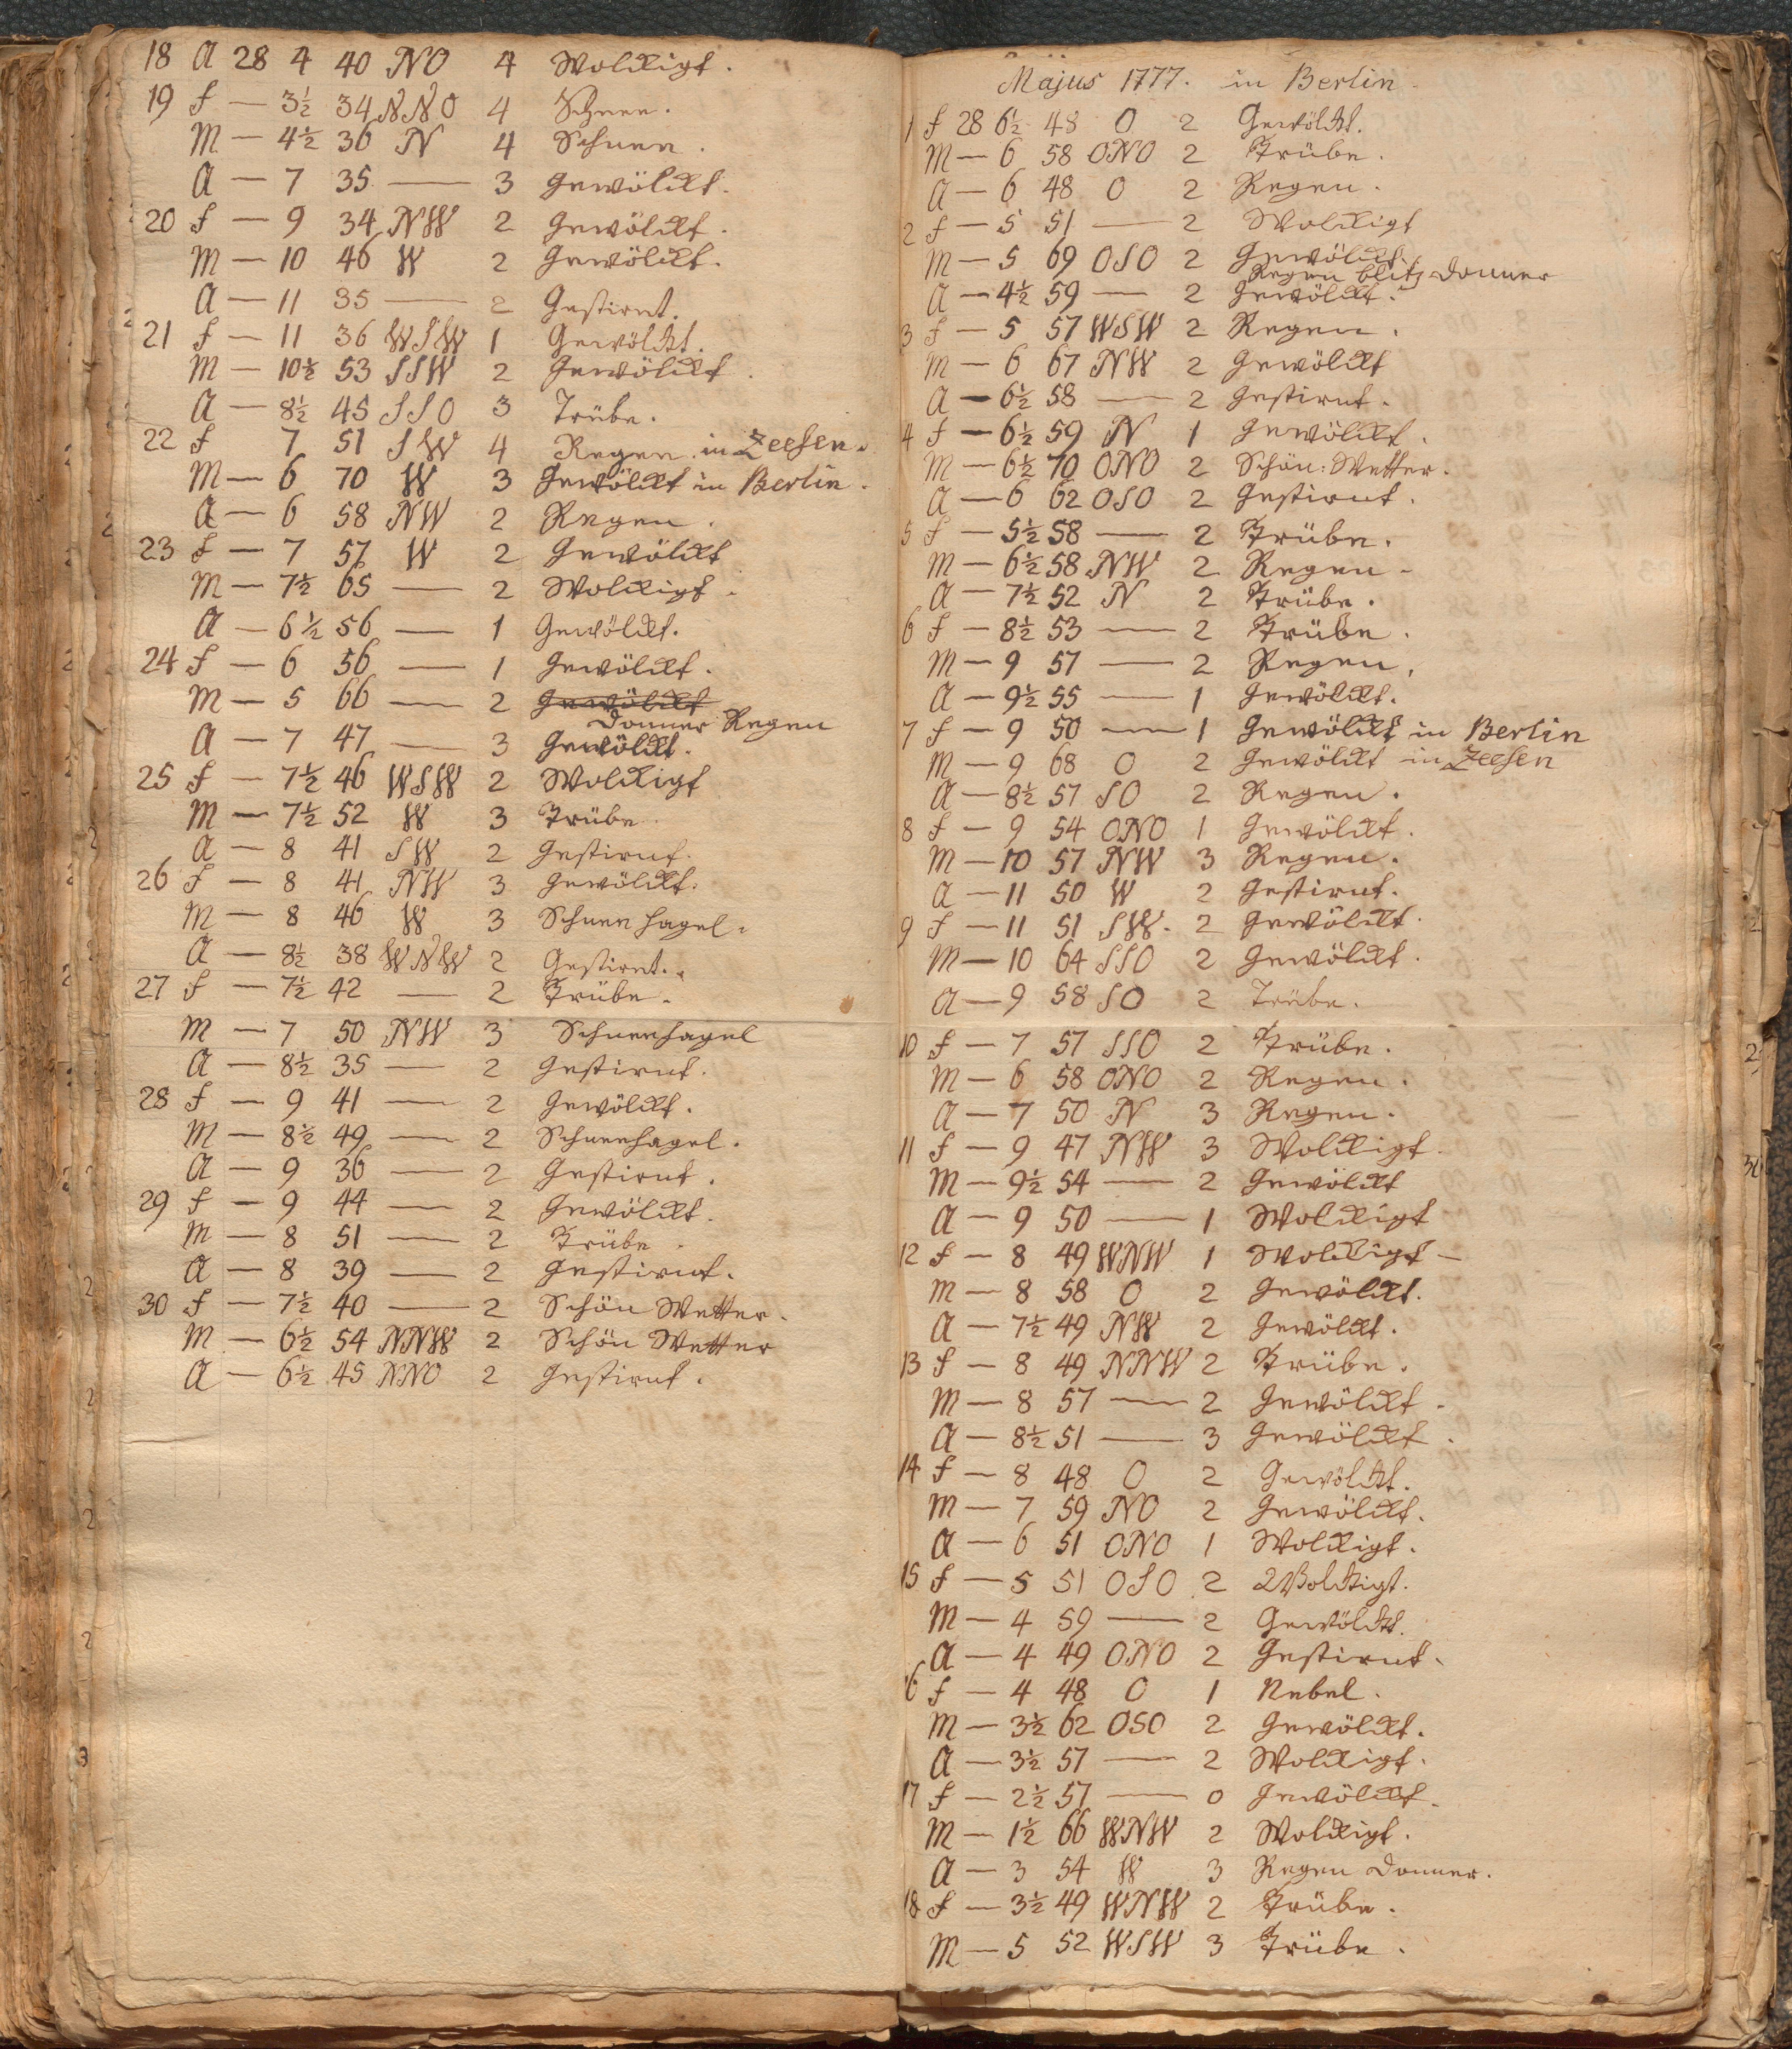 18 A 28 4 40 NO 4 Wolckigt.
19 f — 3½ 34 NNO 4 Schnee.
M — 4½ 36 N 4 Schnee.
A — 7 35 — 3 Gewölckt.
20 f — 9 34 NW 2 Gewölckt.
M — 10 46 W 2 Gewölckt.
A — 11 35 — 2 Gestirnt.
21 f — 11 36 WSW 1 Gewölckt.
M — 10½ 53 SSW 2 Gewölckt.
A — 8½ 45 SSO 3 Trübe.
22 f 7 51 SW 4 Regen. in Zeesen.
M — 6 70 W 3 Gewölckt in Berlin.
A — 6 58 NW 2 Regen.
23 f — 7 57 W 2 Gewölckt
M — 7½ 65 — 2 Wolckigt.
A — 6½ 56 — 1 Gewölckt.
24 f — 6 56 — 1 Gewölckt.
M — 5 66 — 2 Gewölckt
Donner Regen
A — 7 47 — 3 Gewölckt.
25 f — 7½ 46 WSW 2 Wolckigt
M — 7½ 52 W 3 Trübe.
A — 8 41 SW 2 Gestirnt.
26 f — 8 41 NW 3 Gewölckt.
M — 8 46 W 3 Schnee hagel.
A — 8½ 38 WNW 2 Gestirnt.
27 f — 7½ 42 — 2 Trübe.
M — 7 50 NW 3 Schneehagel
A — 8½ 35 — 2 Gestirnt.
28 f — 9 41 — 2 Gewölckt.
M — 8½ 49 — 2 Schneehagel.
A — 9 36 — 2 Gestirnt.
29 f — 9 44 — 2 Gewölckt.
M — 8 51 — 2 Trübe.
A — 8 39 — 2 Gestirnt.
30 f — 7½ 40 — 2 Schön Wetter.
M — 6½ 54 NNW 2 Schön Wetter
A — 6½ 45 NNO 2 Gestirnt.
Majus 1777. in Berlin
1 f 28 6½ 48 O 2 Gewölckt.
M — 6 58 ONO 2 Trübe.
A — 6 48 O 2 Regen.
2 f — 5 51 — 2 Wolckigt
M — 5 69 OSO 2 Gewölckt.
Regen blitz Donner
A — 4½ 59 — 2 Gewölckt.
3 f — 5 57 WSW 2 Regen.
M — 6 67 NW 2 Gewölckt
A — 6½ 58 — 2 Gestirnt.
4 f — 6½ 59 N 1 Gewölckt.
M — 6½ 70 ONO 2 Schön: Wetter.
A — 6 62 OSO 2 Gestirnt.
5 f — 5½ 58 — 2 Trübe.
M — 6½ 58 NW 2 Regen.
A — 7½ 52 N 2 Trübe.
6 f — 8½ 53 — 2 Trübe.
M — 9 57 — 2 Regen.
A — 9½ 55 — 1 Gewölckt.
7 f — 9 50 — 1 Gewölckt in Berlin
M — 9 68 O 2 Gewölckt in Zeesen
A — 8½ 57 SO 2 Regen.
8 f — 9 54 ONO 1 Gewölckt.
M — 10 57 NW 3 Regen.
A — 11 50 W 2 Gestirnt.
9 f — 11 51 SW. 2 Gewölckt.
M — 10 64 SSO 2 Gewölckt.
A — 9 58 SO 2 Trübe.
10 f — 7 57 SSO 2 Trübe.
M — 6 58 ONO 2 Regen.
A — 7 50 N 3 Regen.
11 f — 9 47 NW 3 Wolckigt.
M — 9½ 54 — 2 Gewölckt
A — 9 50 — 1 Wolckigt
12 f — 8 49 WNW 1 Wolckigt —
M — 8 58 O 2 Gewölckt.
A — 7½ 49 NW 2 Gewölckt.
13 f — 8 49 NNW 2 Trübe.
M — 8 57 — 2 Gewölckt.
A — 8½ 51 — 3 Gewölckt.
14 f — 8 48 O 2 Gewölckt.
M — 7 59 NO 2 Gewölckt.
A — 6 51 ONO 1 Wolckigt.
15 f — 5 51 OSO 2 Wolckigt.
M — 4 59 — 2 Gewölckt.
A — 4 49 ONO 2 Gestirnt.
16 f — 4 48 O 1 Nebel.
M — 3½ 62 OSO 2 Gewölckt.
A — 3½ 57 — 2 Wolckigt.
17 f — 2½ 57 — 0 Gewölckt.
M — 1½ 66 WNW 2 Wolckigt.
A — 3 54 W 3 Regen Donner.
18 f — 3½ 49 WNW 2 Trübe.
M — 5 52 WSW 3 Trübe.